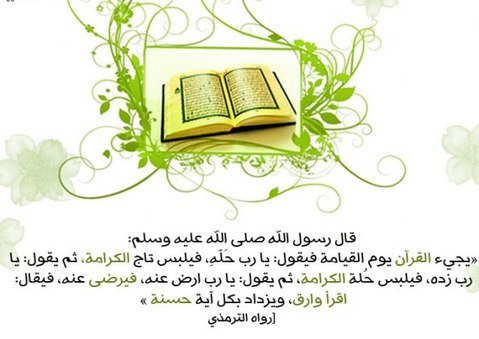 قال رسول الله صلى الله عليه وسلم:
«يجيء القرآن يوم القيامة فيقول: يا رب حَلّهِ، فيلبس تاج الكرامة، ثم يقول: يا
رب زده، فيلبس حُلة الكرامة، ثم يقول: يا رب ارض عنه، فيرضى عنه، فيقال:
اقرأ وارق، ويزداد بكل آية حسنة »
[رواه الترمذي